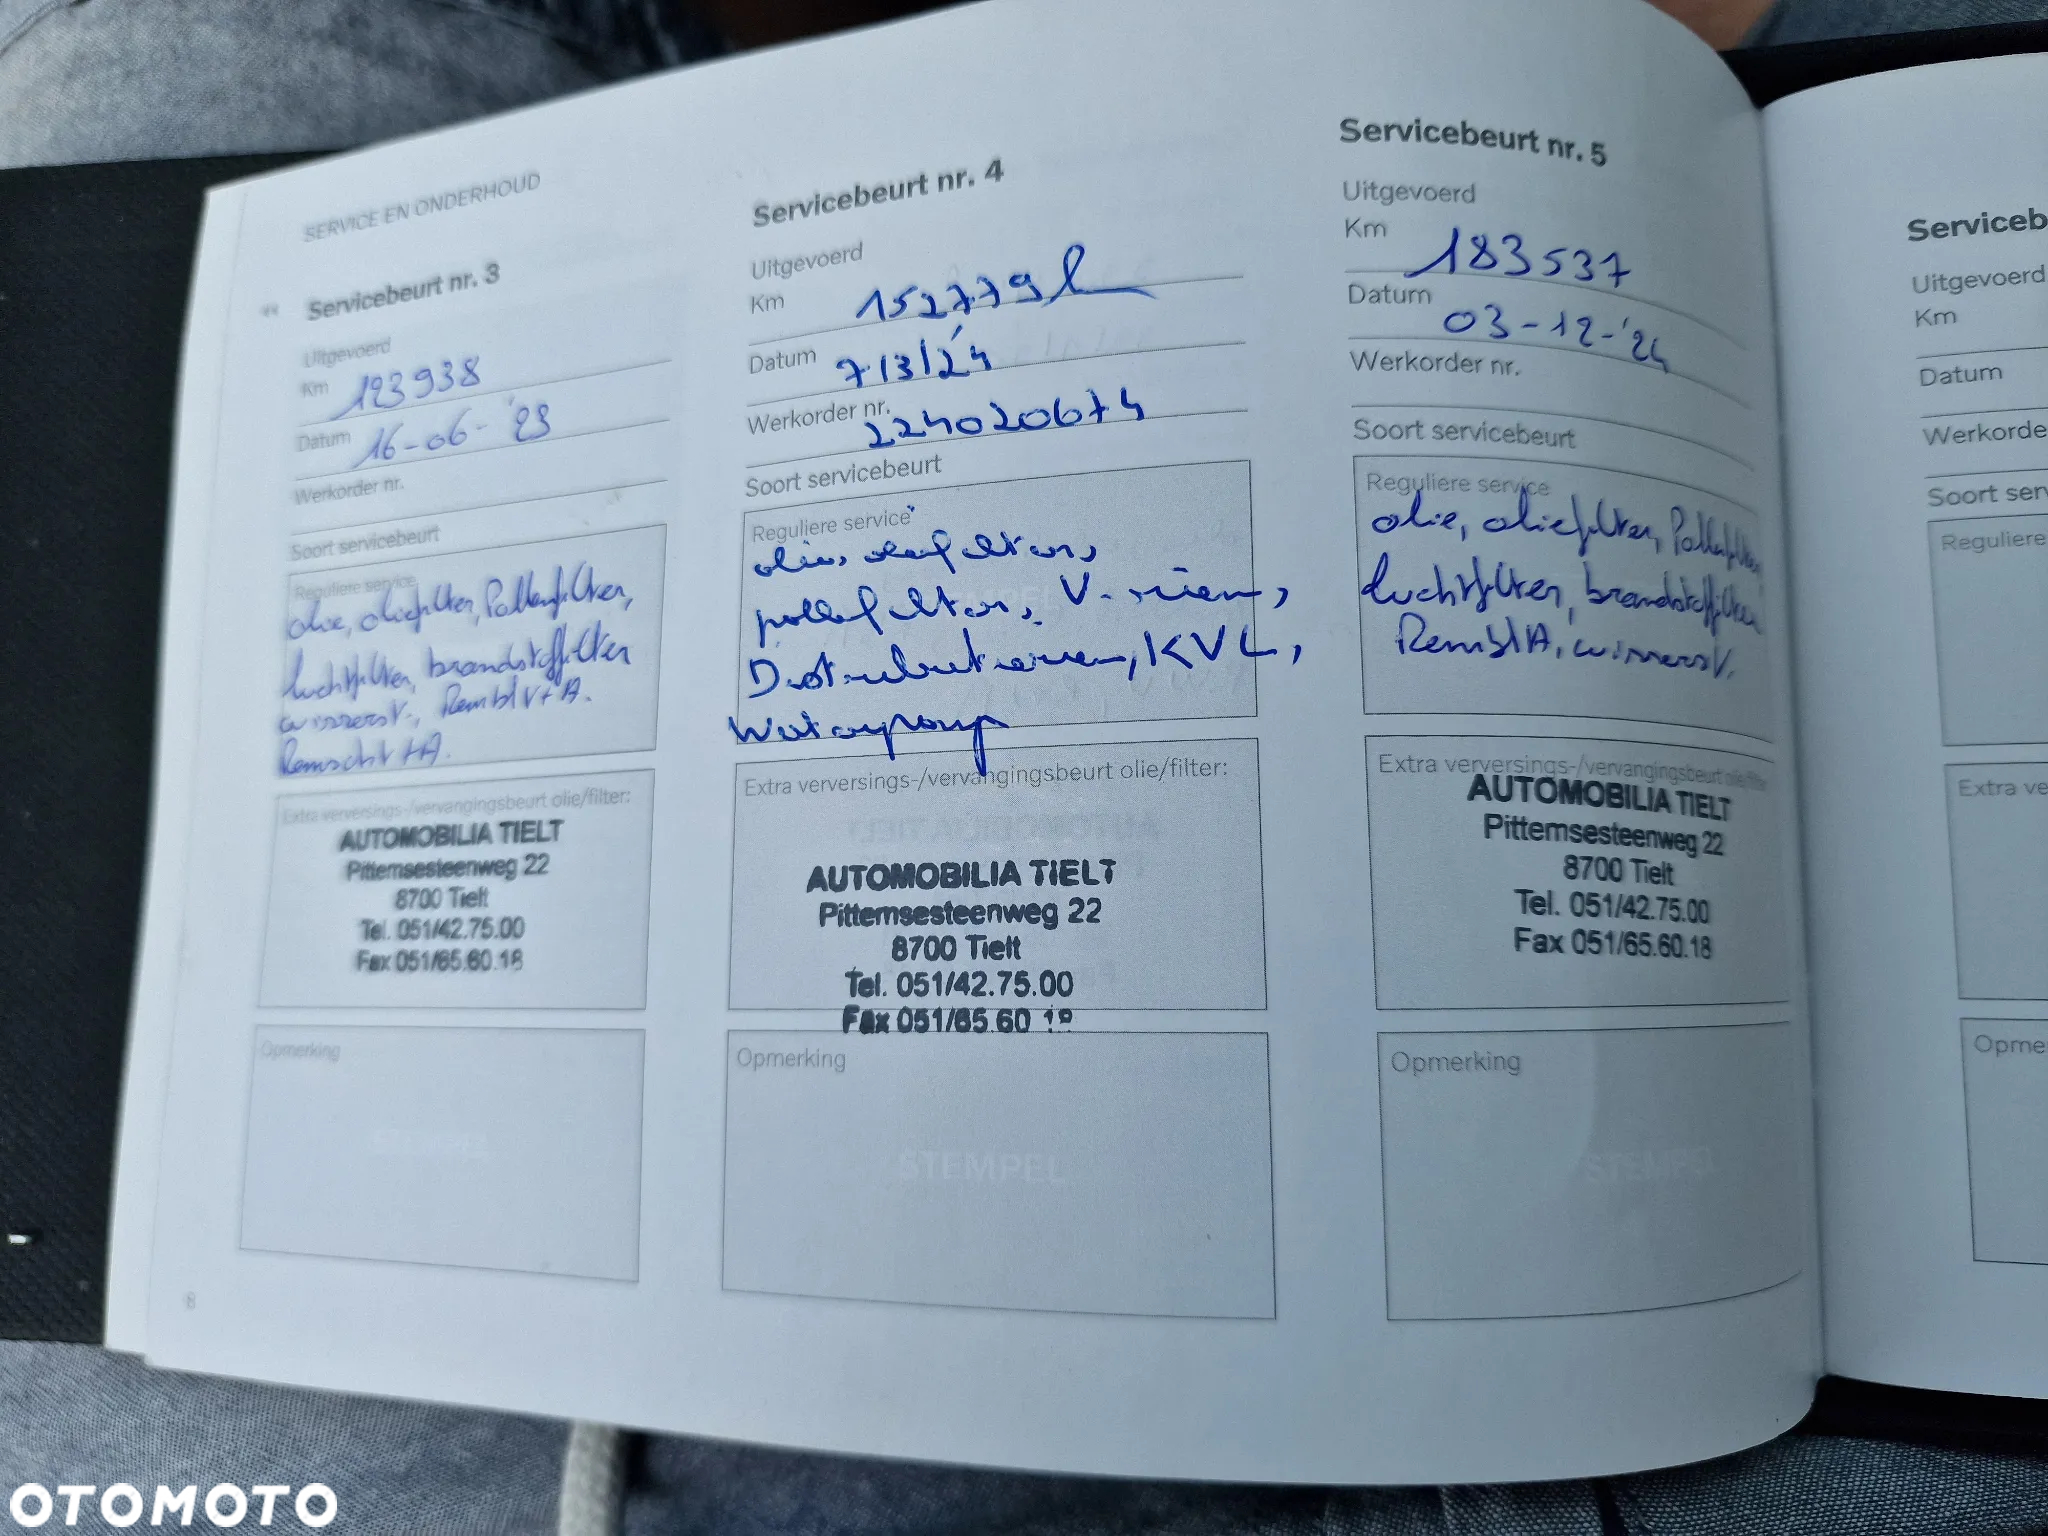 SERVICE EN ONDERHOUD
Servicebeurt nr. 3
Uitgevoerd
Km 123938
Datum 16-06-'23
Werkorder nr.
Soort servicebeurt
Reguliere service
olie, oliefilter, Pollenfilter,
luchtfilter, brandstoffilter
wisserst., Rembl V+A.
Remscht V+A.
Extra verversings-/vervangingsbeurt olie/filter:
AUTOMOBILIA TIELT
Pittemsesteenweg 22
8700 Tielt
Tel. 051/42.75.00
Fax 051/65.60.18
Opmerking
STEMPEL
8
Servicebeurt nr. 4
Uitgevoerd
Km 152779
Datum 7/3/'24
Werkorder nr. 224020674
Soort servicebeurt
Reguliere service
olie, oliefilter,
pollenfilter, V-riem,
Distributieriem, KVL,
Waterpomp
Extra verversings-/vervangingsbeurt olie/filter:
AUTOMOBILIA TIELT
Pittemsesteenweg 22
8700 Tielt
Tel. 051/42.75.00
Fax 051/65.60.18
Opmerking
STEMPEL
Servicebeurt nr. 5
Uitgevoerd
Km 183537
Datum 03-12-'24
Werkorder nr.
Soort servicebeurt
Reguliere service
olie, oliefilter, Pollenfilter,
luchtfilter, brandstoffilter
Rembl A, wisserst.
Extra verversings-/vervangingsbeurt olie/filter
AUTOMOBILIA TIELT
Pittemsesteenweg 22
8700 Tielt
Tel. 051/42.75.00
Fax 051/65.60.18
Opmerking
STEMPEL
Serviceb
Uitgevoerd
Km
Datum
Werkorde
Soort ser
Reguliere
Extra ve
Opme
OTOMOTO